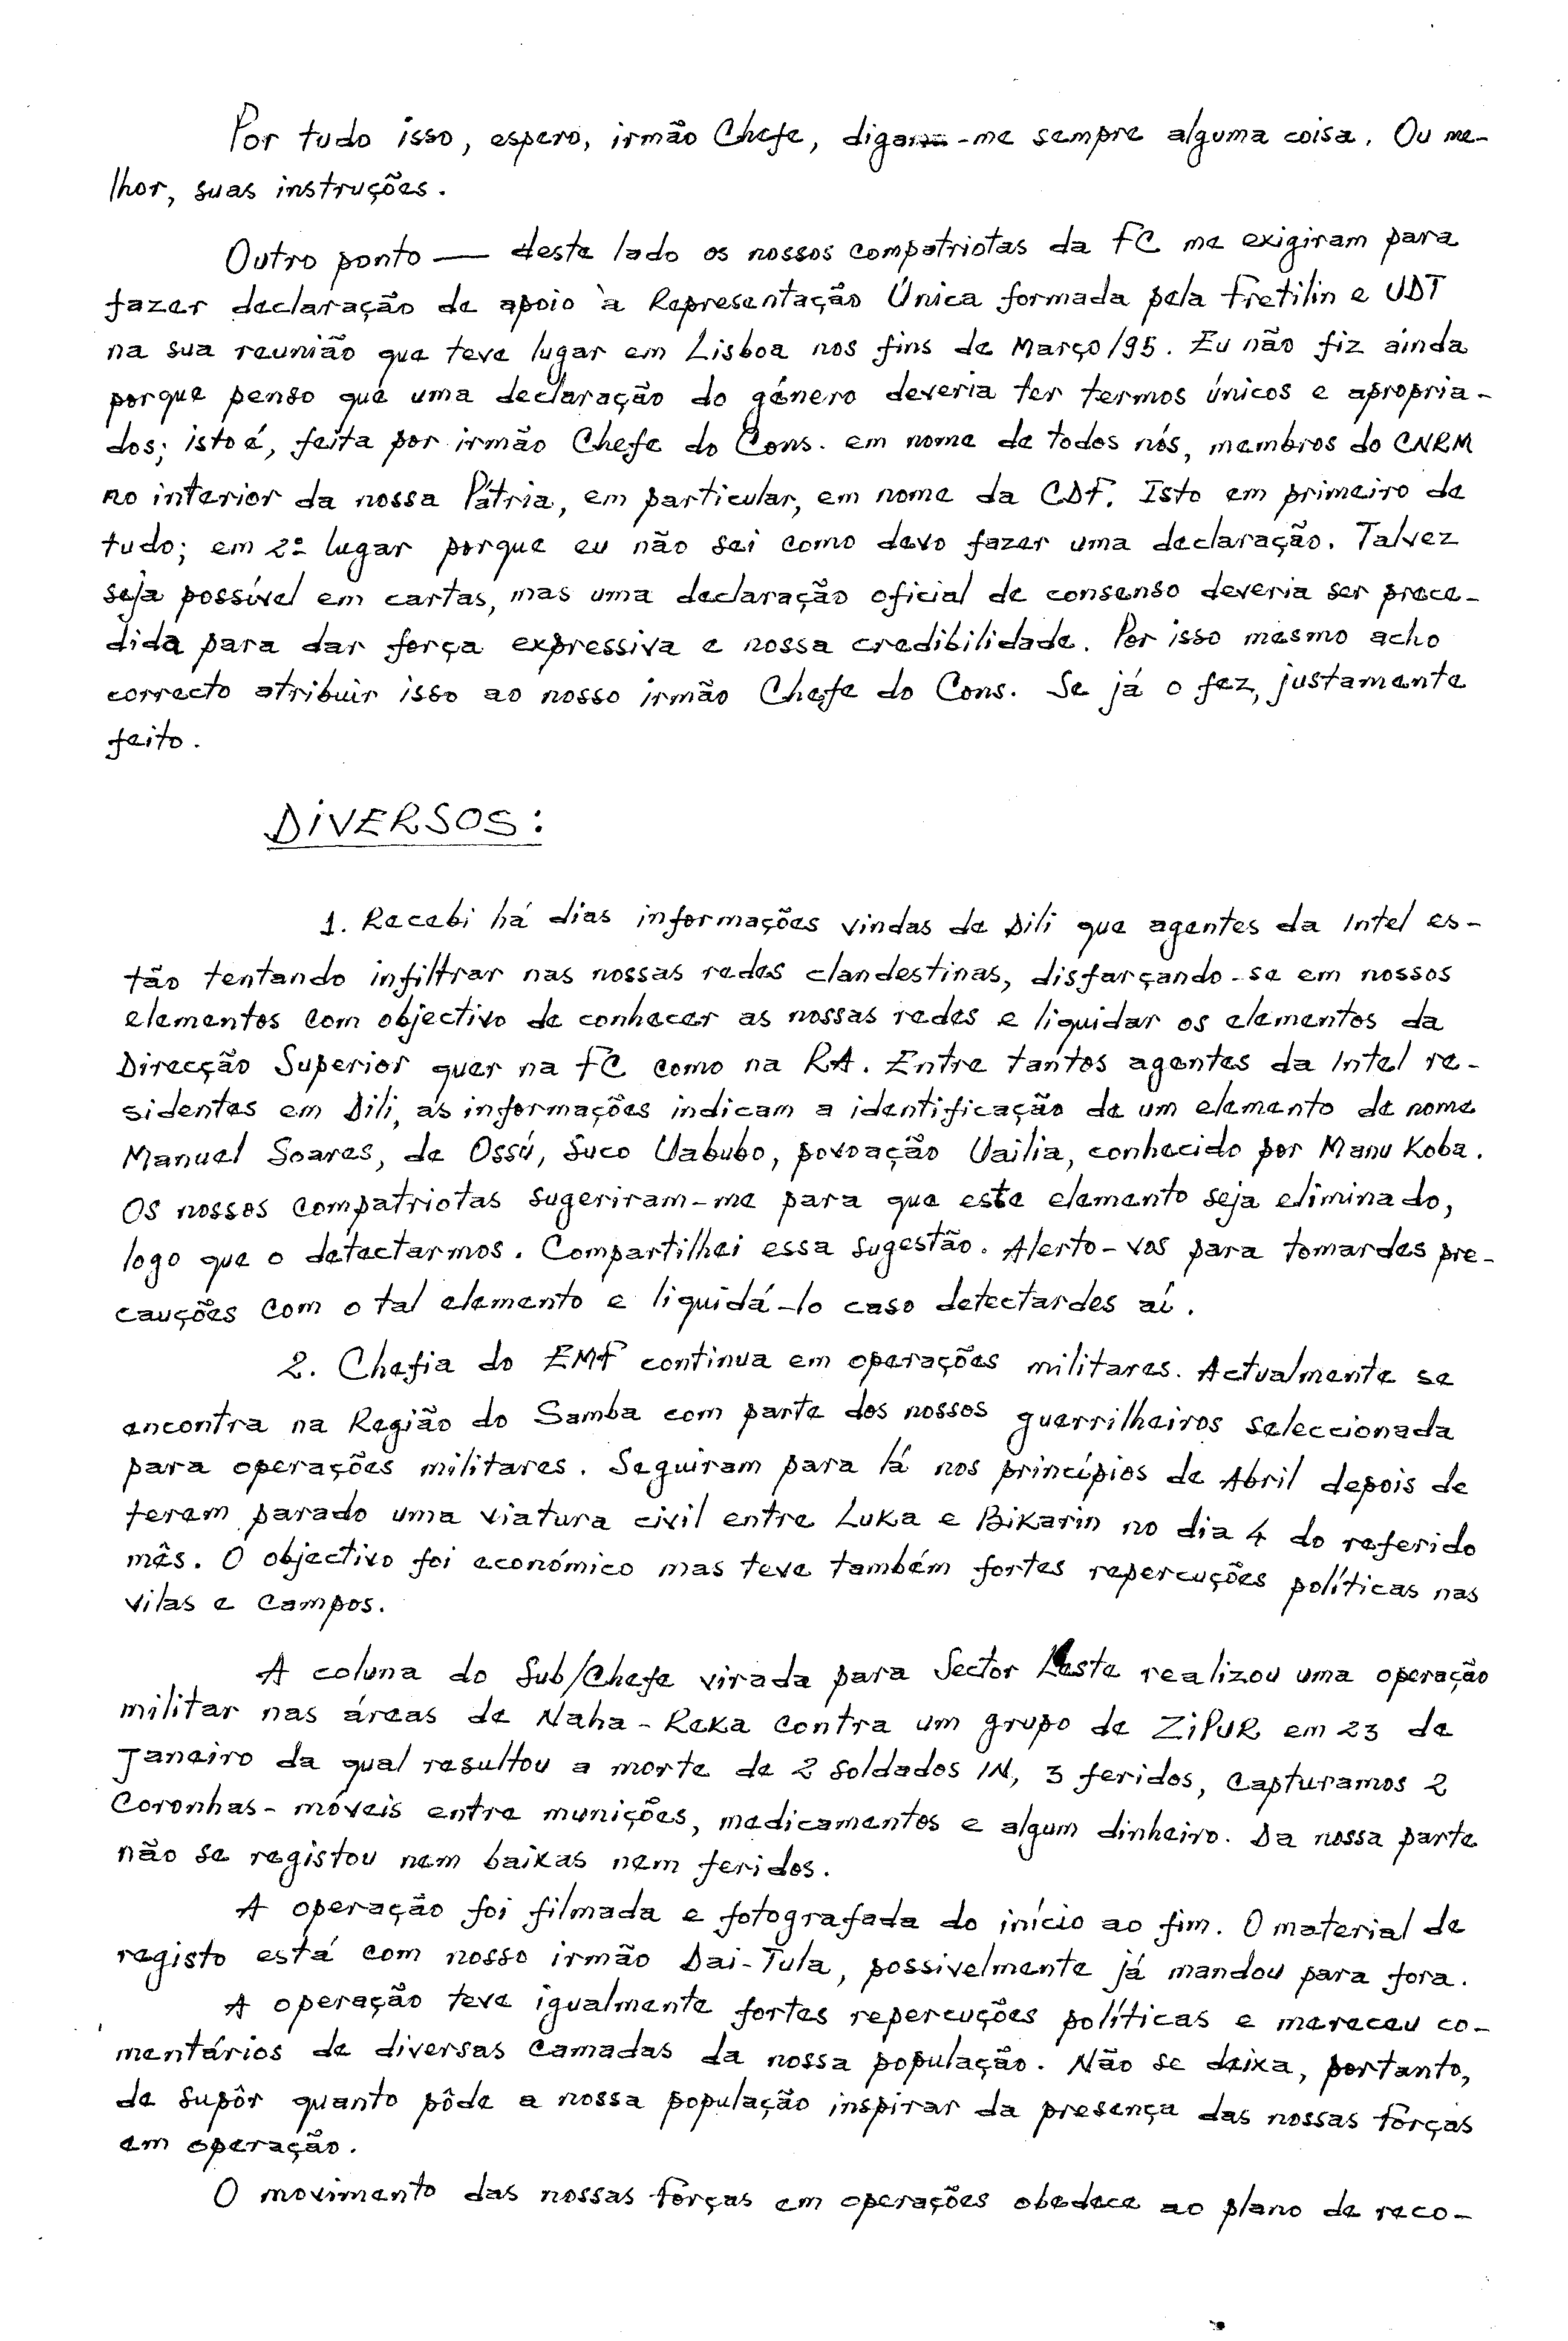 Por tudo isso, espero, irmão Chefe, diga-me sempre alguma coisa. Ou me-
lhor, suas instruções.
Outro ponto — deste lado os nossos compatriotas da FC me exigiram para
fazer declaração de apoio à Representação Única formada pela Fretilin e UDT
na sua reunião que teve lugar em Lisboa nos fins de Março/95. Eu não fiz ainda
porque penso que uma declaração do género deveria ter termos únicos e apropria-
dos; isto é, feita por irmão Chefe do Cons. em nome de todos nós, membros do CNRM
no interior da nossa Pátria, em particular, em nome da CDF. Isto em primeiro de
tudo; em 2º lugar porque eu não sei como devo fazer uma declaração. Talvez
seja possível em cartas, mas uma declaração oficial de consenso deveria ser prece-
dida para dar força expressiva e nossa credibilidade. Por isso mesmo acho
correcto atribuir isso ao nosso irmão Chefe do Cons. Se já o fez, justamente
feito.
DIVERSOS:
1. Recebi há dias informações vindas de Dili que agentes da Intel es-
tão tentando infiltrar nas nossas redes clandestinas, disfarçando-se em nossos
elementos com objectivo de conhecer as nossas redes e liquidar os elementos da
Direcção Superior quer na FC como na RA. Entre tantos agentes da Intel re-
sidentes em Dili, as informações indicam a identificação de um elemento de nome
Manuel Soares, de Ossú, Suco Uabubo, povoação Uailia, conhecido por Manu Koba.
Os nossos compatriotas sugeriram-me para que este elemento seja eliminado,
logo que o detectarmos. Compartilhei essa sugestão. Alerto-vos para tomardes pre-
cauções com o tal elemento e liquidá-lo caso detectardes aí.
2. Chefia do EMF continua em operações militares. Actualmente se
encontra na Região do Samba com parte dos nossos guerrilheiros seleccionada
para operações militares. Seguiram para lá nos princípios de Abril depois de
terem parado uma viatura civil entre Luka e Bikarin no dia 4 do referido
mês. O objectivo foi económico mas teve também fortes repercuções políticas nas
vilas e campos.
A coluna do Sub/Chefe virada para Sector Leste realizou uma operação
militar nas áreas de Naha-Reka contra um grupo de ZiPUR em 23 de
Janeiro da qual resultou a morte de 2 soldados IN, 3 feridos, capturamos 2
Coronhas-móveis entre munições, medicamentos e algum dinheiro. Da nossa parte
não se registou nem baixas nem feridos.
A operação foi filmada e fotografada do início ao fim. O material de
registo está com nosso irmão Dai-Tula, possivelmente já mandou para fora.
A operação teve igualmente fortes repercuções políticas e mereceu co-
mentários de diversas camadas da nossa população. Não se deixa, portanto,
de supôr quanto pôde a nossa população inspirar da presença das nossas forças
em operação.
O movimento das nossas forças em operações obedece ao plano de reco-